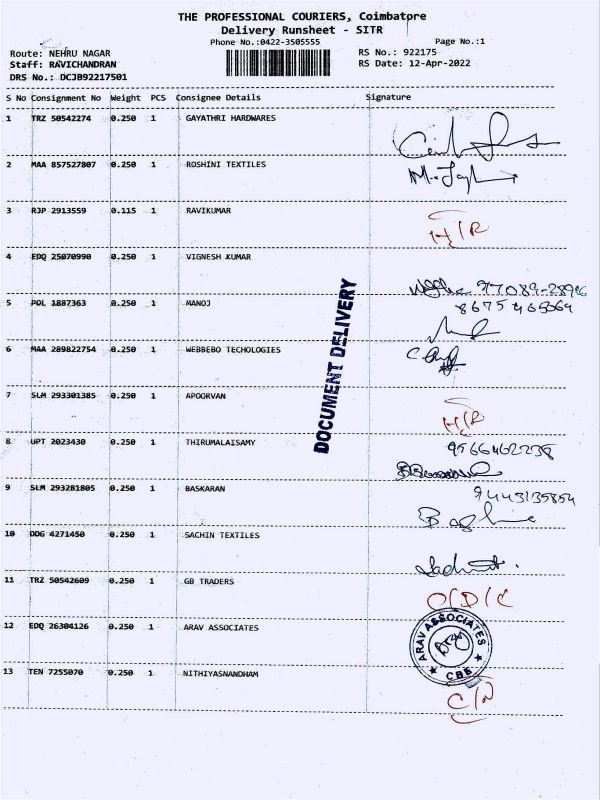 THE PROFESSIONAL COURIERS, Coimbatore
Delivery Runsheet - SITR
Phone No.:0422-3505555 Page No.:1
Route: NEHRU NAGAR RS No.: 922175
Staff: RAVICHANDRAN RS Date: 12-Apr-2022
DRS No.: DCJB92217501
S No Consignment No Weight PCS Consignee Details Signature
1 TRZ 50542274 0.250 1 GAYATHRI HARDWARES
2 MAA 857527807 0.250 1 ROSHINI TEXTILES
3 RJP 2913559 0.115 1 RAVIKUMAR
H/R
4 EDQ 25070990 0.250 1 VIGNESH KUMAR
77089-28916
5 POL 1887363 0.250 1 MANOJ
8675465364
6 MAA 289822754 0.250 1 WEBBEBO TECHOLOGIES
DOCUMENT DELIVERY
7 SLM 293301385 0.250 1 APOORVAN
H/R
8 UPT 2023430 0.250 1 THIRUMALAISAMY
9566462238
9 SLM 293281805 0.250 1 BASKARAN
9443135854
10 DDG 4271450 0.250 1 SACHIN TEXTILES
11 TRZ 50542609 0.250 1 GB TRADERS
O/D/C
12 EDQ 26304126 0.250 1 ARAV ASSOCIATES
ARAV ASSOCIATES
CBE
13 TEN 7255070 0.250 1 NITHIYASNANDHAM
C/N